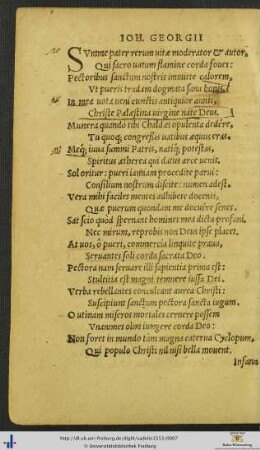 IOH. GEORGII
SVmme pater rerum uitæ moderator & autor,
Qui sacro uatum flamine corda foues:
Pectoribus sanctum nostris immitte calorem,
Vt pueris tradam dogmata sana bonis.
In mea uota ueni cunctis antiquior annis,
Christe Palæstina uirgine nate Deus.
Munera quando tibi Chaldæi opulenta dedêre,
Tu quoque congressus uatibus æquus eras.
Meque iuua summi Patris, natique potestas,
Spiritus ætherea qui datus arce uenis.
Sol oritur: pueri iamiam procedite parui:
Consilium nostrum discite: numen adest.
Vera mihi faciles mentes adhibete docenti,
Quæ puerum quondam me docuêre senes.
Sat scio quòd spernant homines mea dicta profani.
Nec mirum, reprobis non Deus ipse placet.
At uos, ô pueri, commercia linquite praua,
Seruantes soli corda sacrata Deo.
Pectora nam seruare illi sapientia prima est:
Stultitia est magni temnere iussa Dei.
Verba rebellantes conculcant aurea Christi:
Suscipiunt sanctum pectora sancta iugum.
O utinam miseros mortales cernere possem
Vnanimes uni iungere corda Deo:
Non foret in mundo tam magna caterna Cyclopum,
Qui populo Christi nil nisi bella mouent.
Insana
http://dl.ub.uni-freiburg.de/diglit/sadelin1555/0007
Universitätsbibliothek Freiburg